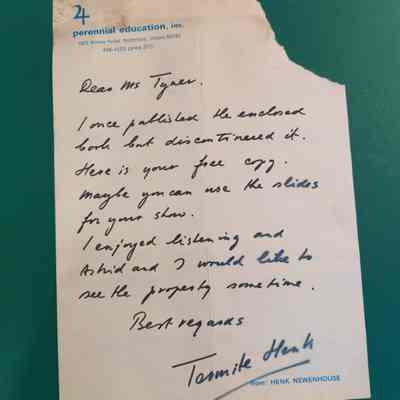 perennial education, inc.
Dear Ms Tyner.
I once published the enclosed
book but discontinered it.
Here is your free copy.
Maybe you can use the slides
for your show.
I enjoyed listening and
Astrid and I would like to
see the property sometime.
Best regards
Termite Henk
from: HENK NEWENHOUSE